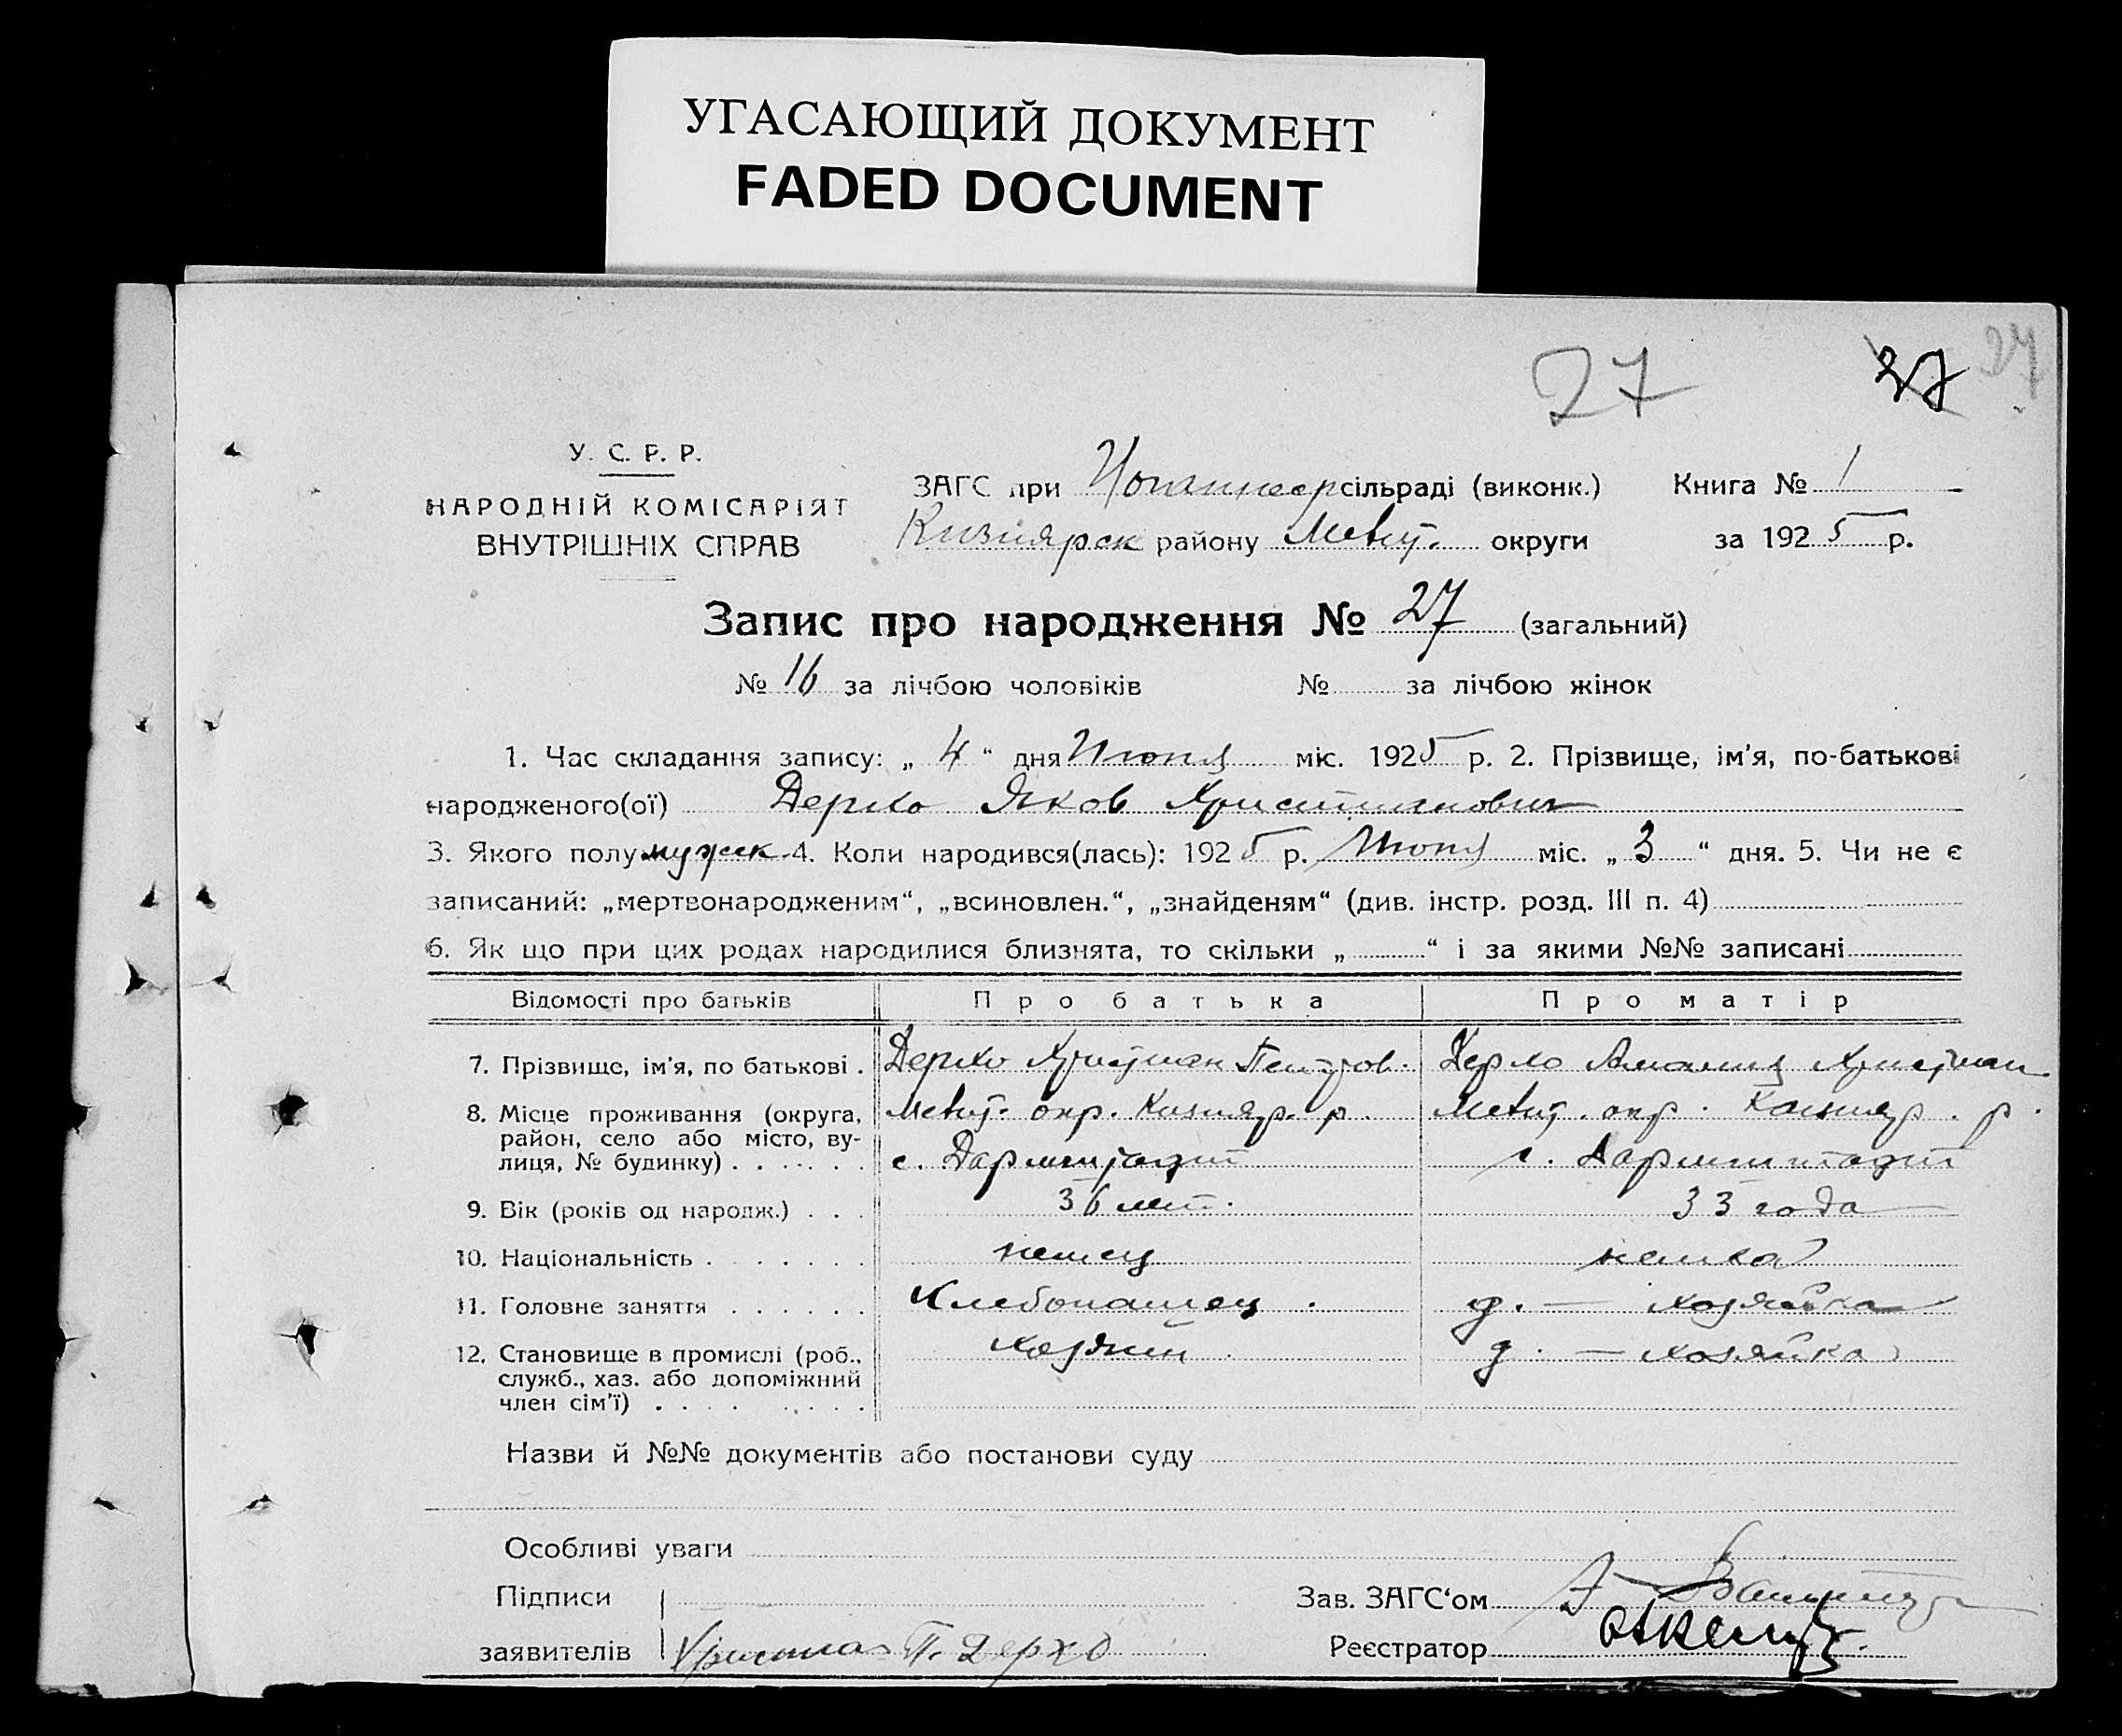 УГАСАЮЩИЙ ДОКУМЕНТ
FADED DOCUMENT
27 27 27
У. С. Р. Р.
НАРОДНІЙ КОМІСАРІЯТ
ВНУТРІШНІХ СПРАВ
ЗАГС при сільраді (виконк.) Книга № 1
Кизиярск району Мелит. округи за 1925 р.
Запис про народження № 27 (загальний)
№ 16 за лічбою чоловіків № за лічбою жінок
1. Час складання запису: „ 4 “ дня Июня міс. 1925 р. 2. Прізвище, ім’я, по-батькові
народженого(ої) Дерхо Яков Христианович
3. Якого полу мужск 4. Коли народився(лась): 1925 р. Июня міс. „ 3 “ дня. 5. Чи не є
записаний: „мертвонародженим“, „всиновлен.“, „знайденям“ (див. інстр. розд. III п. 4)
6. Як що при цих родах народилися близнята, то скільки „ “ і за якими №№ записані
Відомості про батьків Про батька Про матір
7. Прізвище, ім’я, по батькові . Дерхо Христиан Петров. Дерхо Амалия Христиан.
8. Місце проживання (округа, Мелит. окр. Кизияр. р. Мелит. окр. Кизияр. р.
район, село або місто, ву-
лиця, № будинку) с. Дармштадт с. Дармштадт
9. Вік (років од народж.) . . . 36 лет. 33 года
10. Національність немец немка
11. Головне заняття Хлебопашец . д. — хозяйка
12. Становище в промислі (роб., хозяин . д. — хозяйка
служб., хаз. або допоміжний
член сім’ї)
Назви й №№ документів або постанови суду
Особливі уваги
Підписи Зав. ЗАГС‘ом
заявителів Христиан П. Дерхо Реєстратор